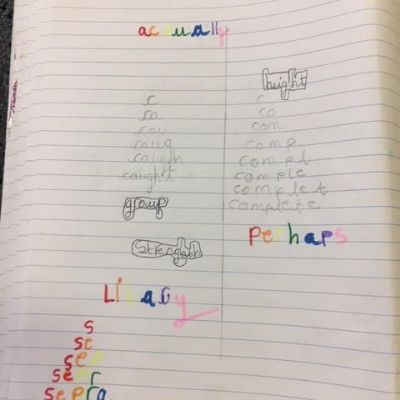 actually
c
ca
cau
caug
caugh
caught
group
strength
height
c
co
com
comp
compl
comple
complet
complete
Perhaps
s
se
sep
sepr
sepra